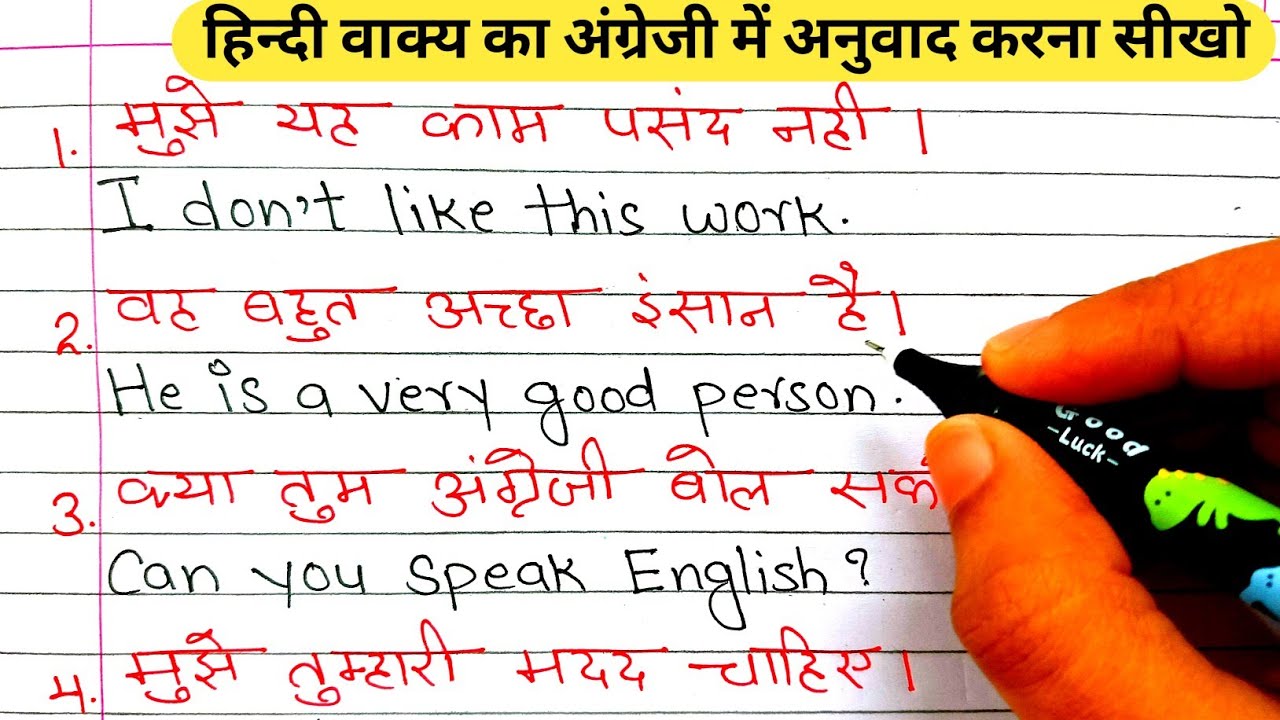 हिन्दी वाक्य का अंग्रेजी में अनुवाद करना सीखो
1. मुझे यह काम पसंद नही ।
I don't like this work.
2. वह बहुत अच्छा इंसान है।
He is a very good person.
3. क्या तुम अंग्रेजी बोल
Can you speak English?
4. मुझे तुम्हारी मदद चाहिए।
Good
-Luck-